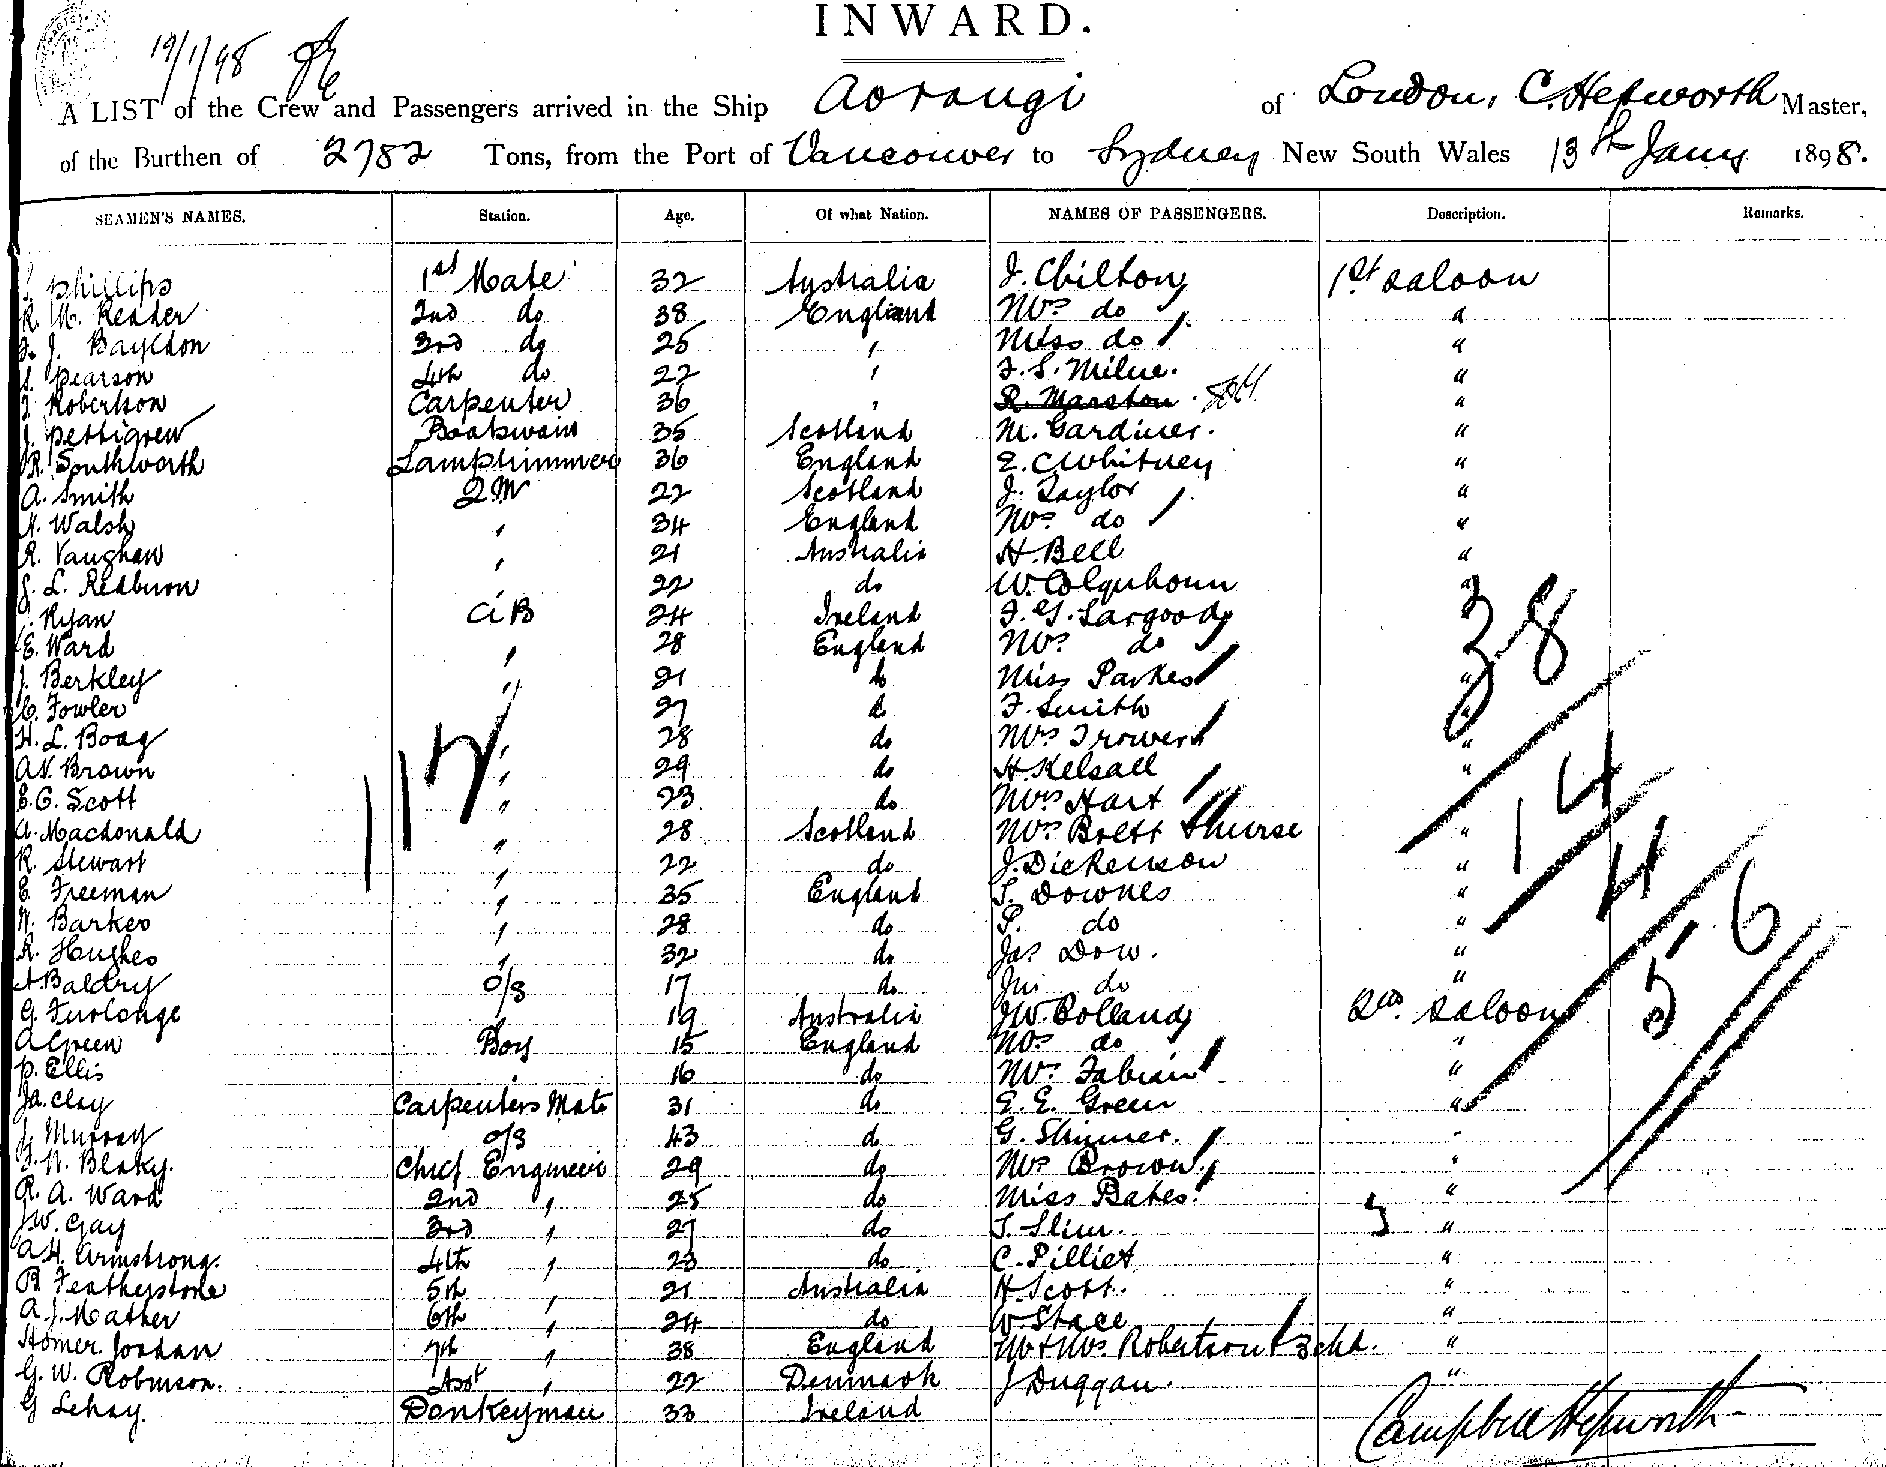 INWARD.
19/1/98
A LIST of the Crew and Passengers arrived in the Ship Aorangi of London, C. Hepworth Master,
of the Burthen of 2782 Tons, from the Port of Vancouver to Sydney New South Wales 13th Jany 1898.
SEAMEN'S NAMES. Station. Age. Of what Nation. NAMES OF PASSENGERS. Description. Remarks.
Phillips 1st Mate 32 Australia J. Chilton 1st Saloon
R. M. Reader 2nd do 38 England Mrs do "
J. Bayldon 3rd do 25 " Miss do "
Pearson 4th do 22 " F. S. Milne. "
Robertson Carpenter 36 " R. Marston "
J. Pettigrew Boatswain 35 Scotland M. Gardiner. "
R. Southworth Lamptrimmer 36 England E. C Whitney "
A. Smith QM 22 Scotland J. Taylor "
Walsh " 34 England Mrs do "
R. Vaughan " 21 Australia H. Bell "
L. Redburn " 22 do W. Colquhoun "
Ryan AB 24 Ireland F. G. Sargood "
E. Ward " 28 England Mrs do "
J. Berkley " 21 do Miss Parkes "
C. Fowler " 27 do F. Smith "
H. L. Boag " 28 do Mrs Trower "
A. Brown " 29 do H. Kelsall "
E. G. Scott " 23 do Mrs Hart
A. Macdonald " 28 Scotland Mrs Brett & nurse "
R. Stewart " 22 do J. Dickenson "
E. Freeman " 35 England S. Downes "
Barker " 28 do P. do "
R. Hughes " 32 do Jas Dow. "
Baldry o/s 17 do Jni do "
G. Furlonge 19 Australia J W. Bolland 2nd Saloon
A Green Boy 15 England Mrs do "
P. Ellis " 16 do Mrs Fabian "
Ja. Clay Carpenters Mate 31 do E. E. Green "
J. Murray o/s 43 do G. Skinner. "
N. Blaky. Chief Engineer 29 do Mrs Brown "
R. A. Ward 2nd " 25 do Miss Bates. "
J W. Gay 3rd " 27 do S. Slim. "
A H. Armstrong. 4th " 23 do C. Pilliet "
R Featherstone 5th " 21 Australia H Scott. "
A. J. Mather 6th " 24 do W Stace "
Homer Jordan 7th " 38 England Mr & Mrs Robertson & 3 chd. "
G. W. Robinson. Asst " 22 Denmark J Duggan. "
G Lehay. Donkeyman 33 Ireland
117
38
14
4
56
5
3
Campbell Hepworth